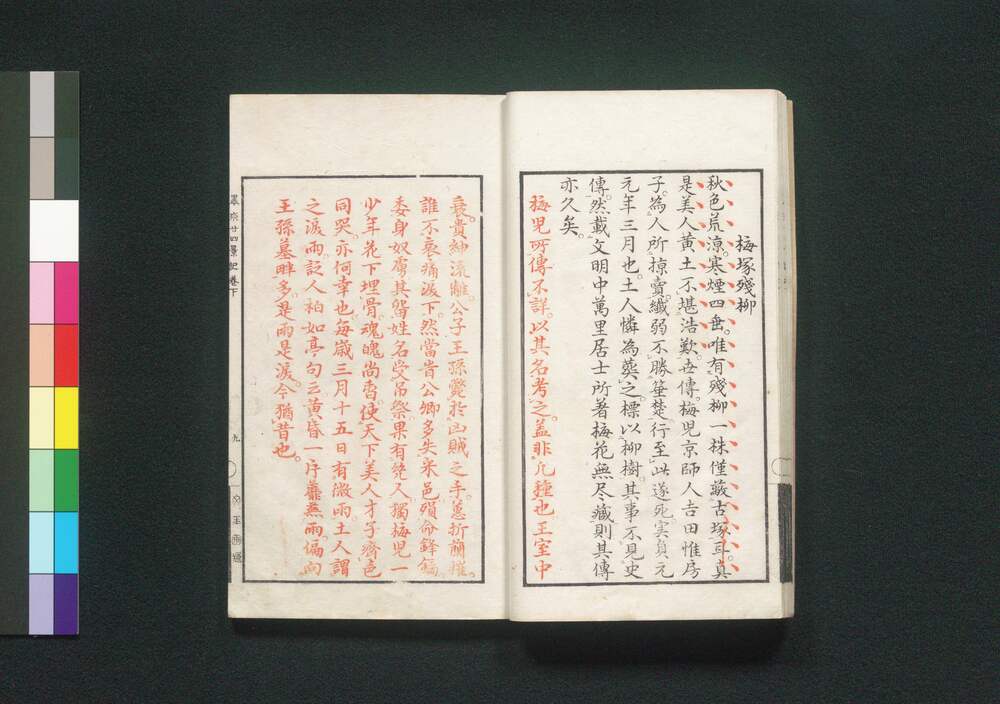 梅塚殘柳
秋色荒涼。寒煙四垂。唯有殘柳一株僅蔽古塚耳。真
是美人黄土不堪浩歎。世傳。梅児京師人吉田惟房
子。為人所掠賣。纖弱不勝箠楚。行至此遂死。実貞元
元年三月也。土人憐為葬之。標以柳樹。其事不見史
傳。然載文明中萬里居士所著梅花無尽蔵。則其傳
亦久矣。
梅児所傳不詳。以其名考之。蓋非凡種也。王室中
衰。貴紳流離。公子王孫斃於凶賊之手。蕙折蘭摧。
誰不哀痛淚下。然當昔公卿多失釆邑。殞命鋒鏑。
委身奴虜。其留姓名受吊祭。果有幾人。獨梅児一
少年。花下埋骨。魂魄尚香。使天下美人才子齊色
同哭。亦何幸也。每歳三月十五日有微雨。土人謂
之淚雨。記人柏如亭句云。黄昏一片蘼蕪雨。偏向
王孫墓畔多。是雨是淚。今猶昔也。
廿四景記卷下
九